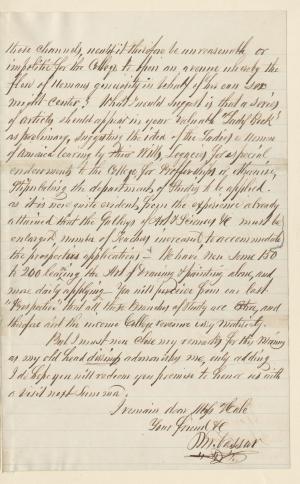 these channels, would it therefore be unreasonable or
impolitic for the College to open an avenue whereby the
flow of Womans generosity in behalf of her own Sex
might center? What I would suggest is that a Series
of articles should appear in your valuable "Lady Book"
as preliminary, suggesting the idea of the Ladies & Women
of America leaving by their Wills, Legacys for special
endowments to the College for Professorships or otherwise,
Stipulating the department of Study to be applied.
as it is now quite evident, from the experience already
attained that the Gallerys of Art & Sciences &c must be
enlarged, number of Teachers increased to accommodate
the prospective applications — We have now some 150
to 200 learning the Art of drawing & painting alone, and
more daily applying. You will perceive from our last
"Prospectus" that all these branches of Study are Extra, and
therefore add the income College revenue very materially.
But I must now close my remarks for this Morning
as my old head admonishes me, only adding
I do hope you will redeem you promise to honor us with
a visit next Summer.
I remain dear Mrs Hale
Your friend &c
M. Vassar